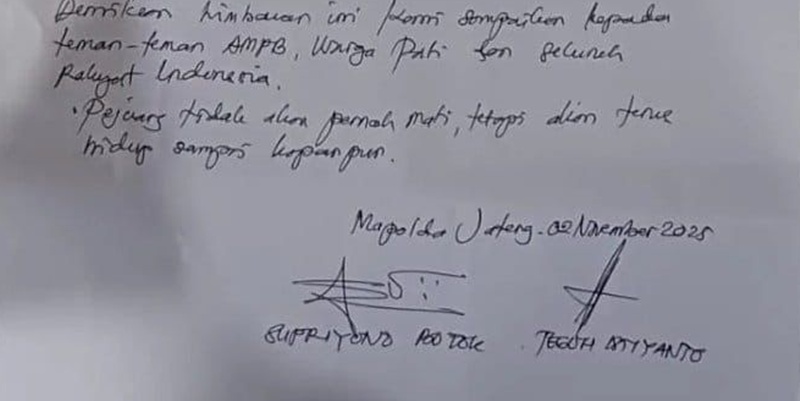 Demikian himbauan ini kami sampaikan kepada
teman-teman AMPB, Warga Pati dan seluruh
Rakyat Indonesia.
"Pejuang tidak akan pernah mati, tetapi akan terus
hidup sampai kapanpun.
Mapolda Jateng. 02 November 2025
SUPRIYONO BOTOK
TEGUH ISTIYANTO